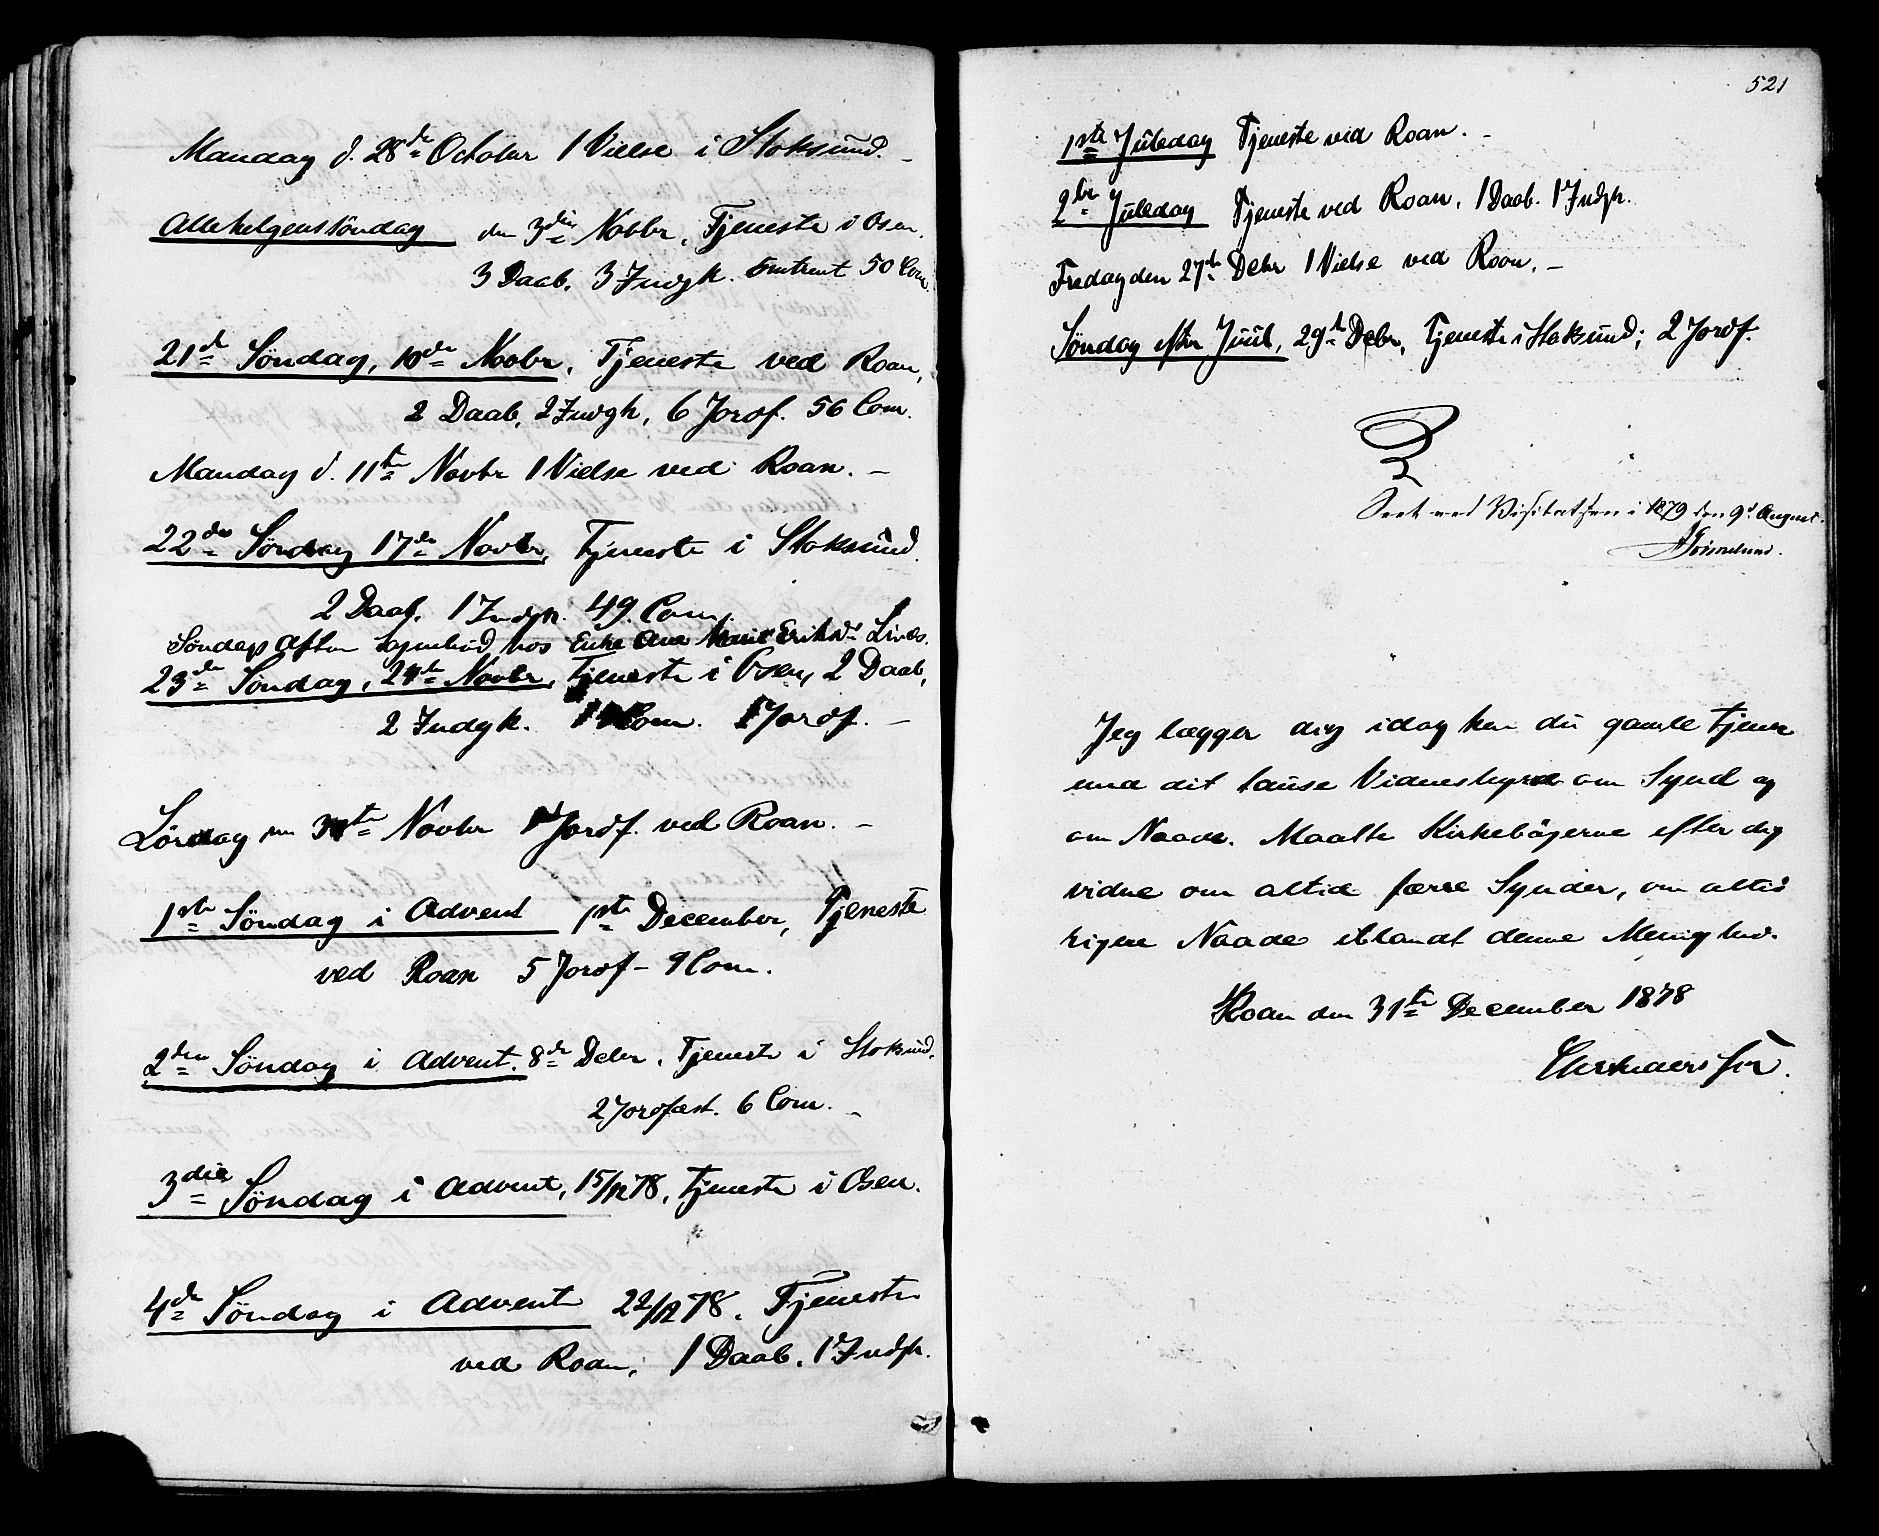 Mandag d. 28de October 1 Vielse i Stoksund. –
Allehelgenssöndag den 3die Novbr, Tjeneste i Osen.
3 Daab. 3 Indgk. Omtrent 50 Com.
21de Söndag, 10de Novbr, Tjeneste ved Roan,
2 Daab, 2 Indgk, 6 Jordf. 56 Com.
Mandag d. 11te Novbr 1 Vielse ved Roan. –
22de Söndag 17de Novbr, Tjeneste i Stoksund.
2 Daab. 1 Indgk. 49. Com.
Söndags Aften hos Enke Ane Marie Eriksd. Lines.
23de Söndag, 24de Novbr, Tjeneste i Osen, 2 Daab,
2 Indgk. Com. 1 Jordf. –
Lördag den Novbr Jordf. ved Roan. –
1ste Söndag i Advent 1ste December, Tjeneste
ved Roan 5 Jordf – 9 Com.
2den Söndag i Advent. 8de Debr. Tjeneste i Stoksund.
2 Jordfæst. 6 Com. –
3die Söndag i Advent, 15/12 78, Tjeneste i Osen.
4de Söndag i Advent 22/12 78. Tjeneste
ved Roan, 1 Daab. 1 Indgk.
521
1ste Juledag Tjeneste ved Roan. –
2de Juledag Tjeneste ved Roan, 1 Daab. 1 Indgk.
Fredag den 27de Debr 1 Vielse ved Roan. –
Söndag efter Juul, 29de Debr, Tjeneste i Stoksund; 2 Jordf.
Seet ved Visitatsen i 1879 den 9d August.
Jeg lægger dig idag hen du gamle Tjener
med dit tause Vidnesbyrd om Synd og
om Naade. Maatte Kirkebögerne efter dig
vidne om altid færre Synder, om altid
rigere Naade iblandt denne Menighed.
Roan den 31te December 1878